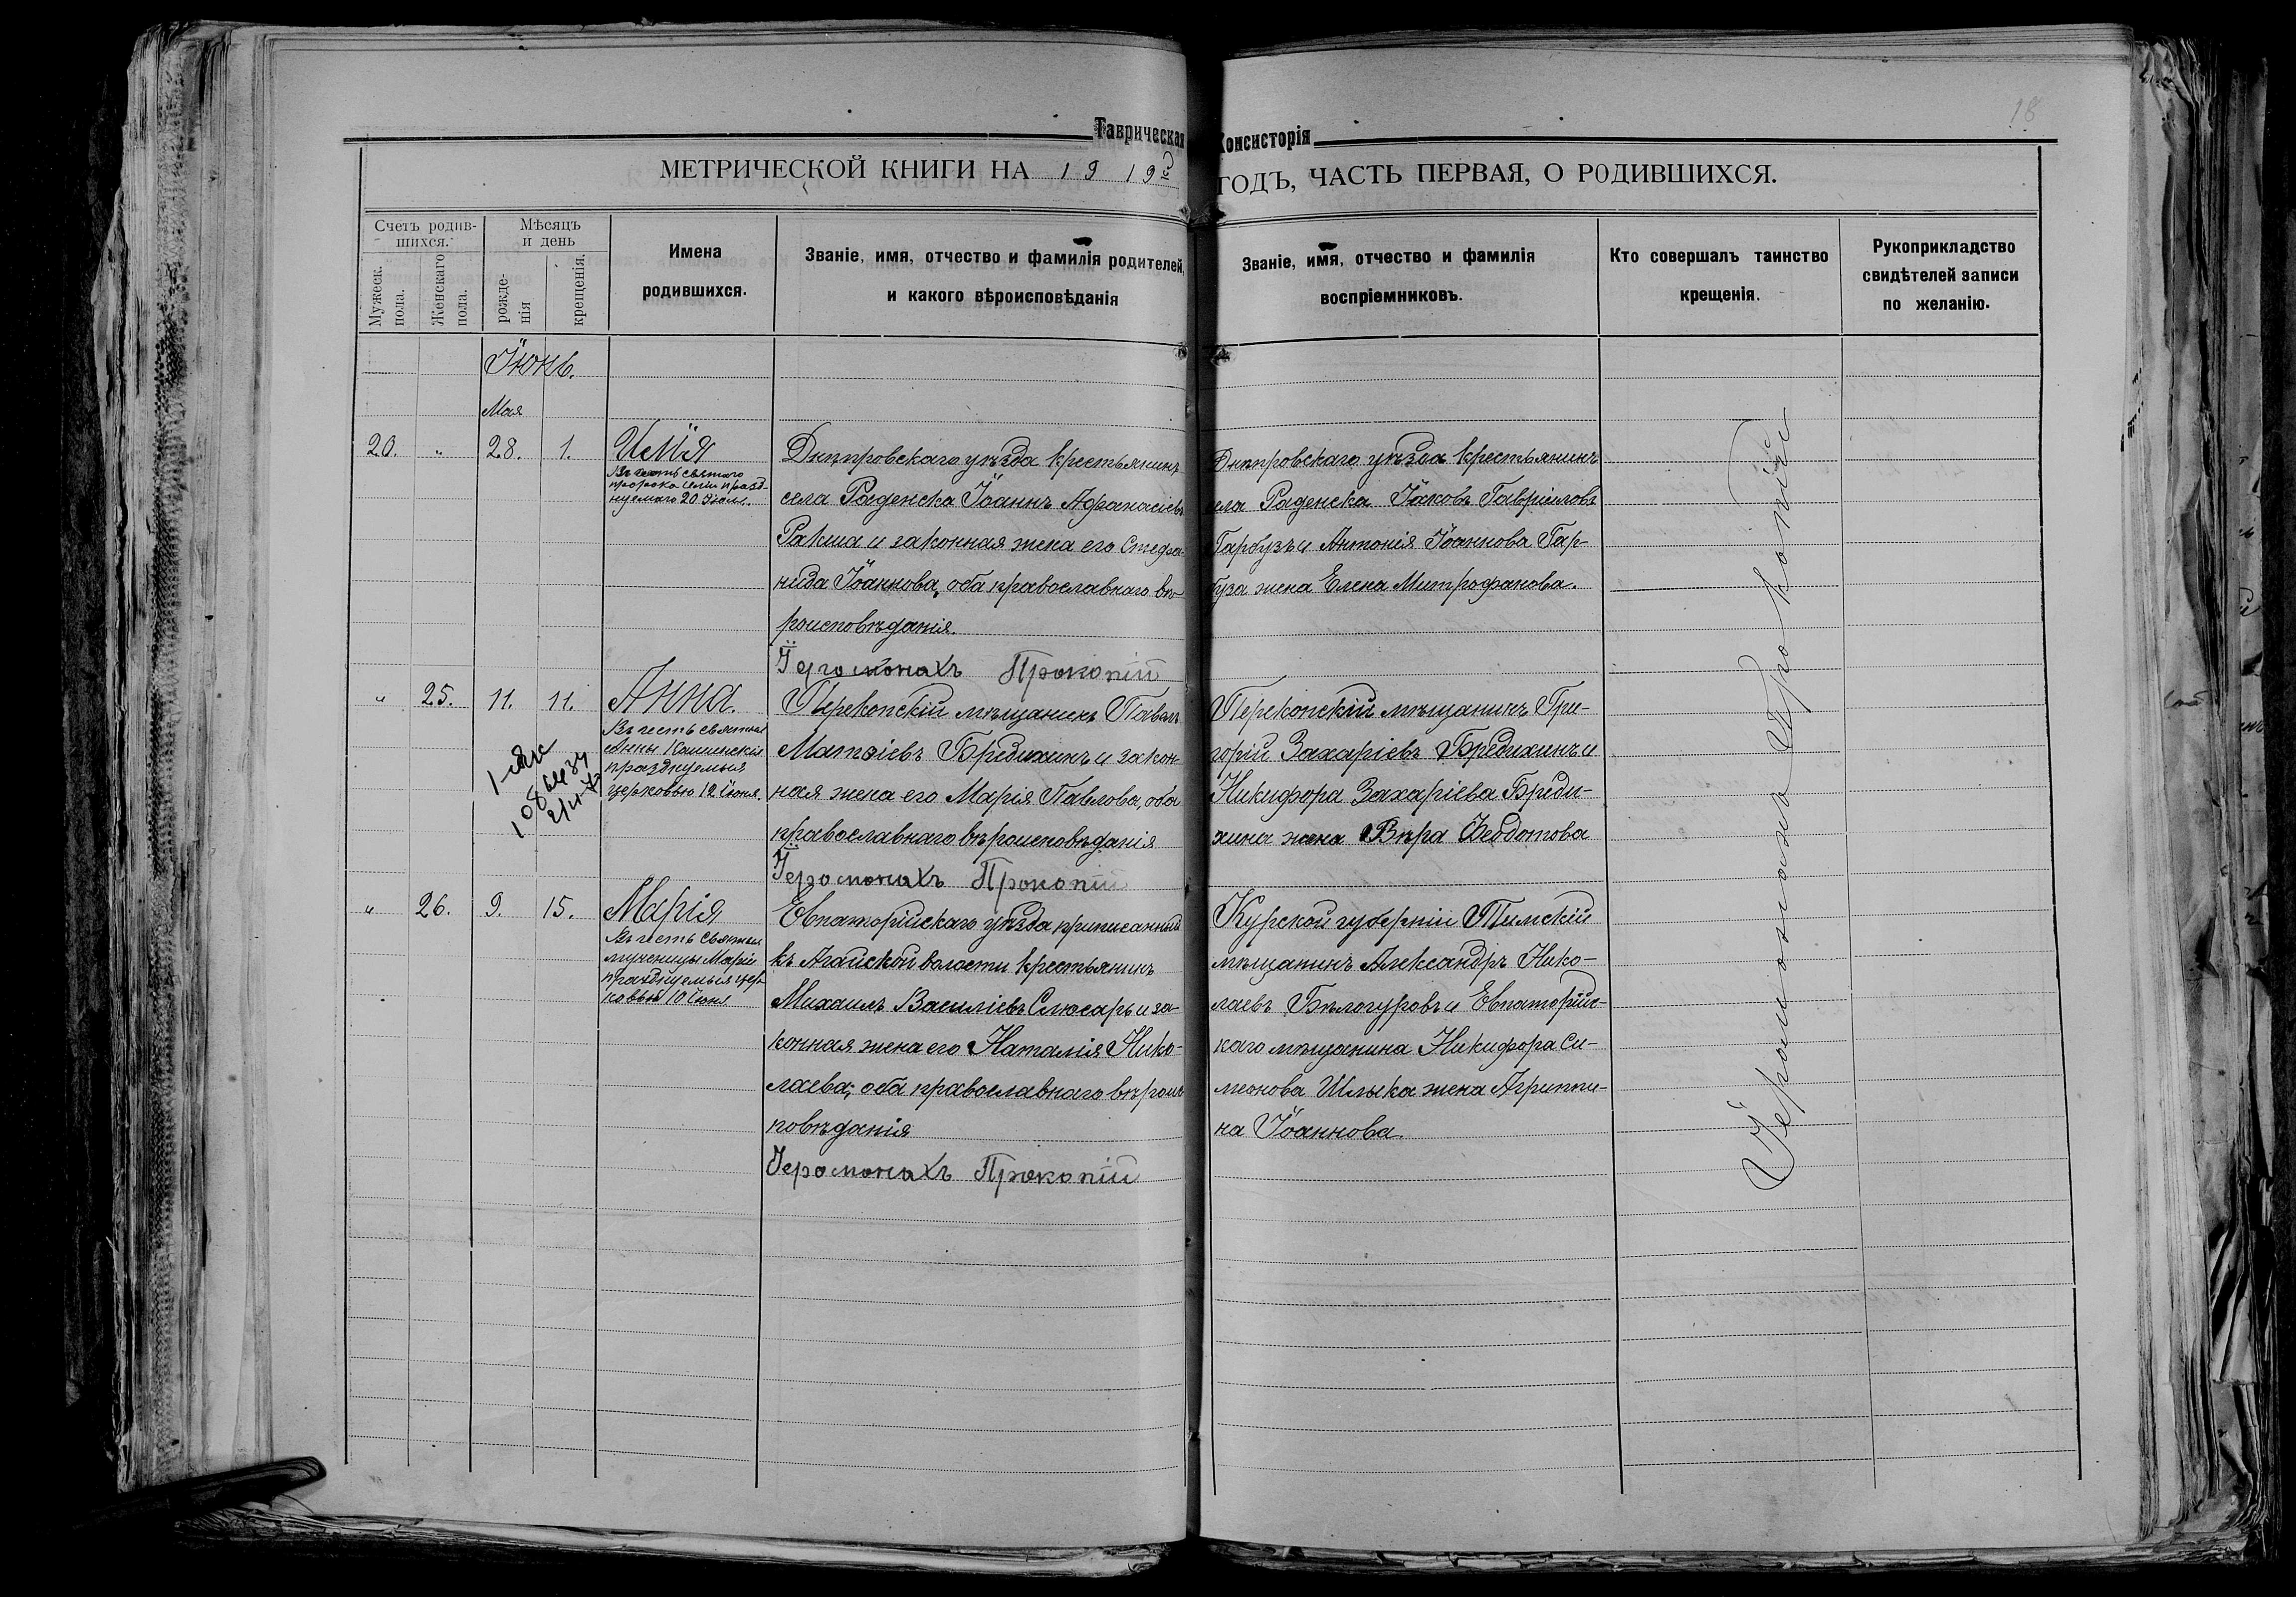 18
Таврическая Консисторія
МЕТРИЧЕСКОЙ КНИГИ НА 1919й ГОДЪ, ЧАСТЬ ПЕРВАЯ, О РОДИВШИХСЯ.
Счетъ родив-
шихся.
Мужеск.
пола.
Женскаго
пола.
Мѣсяцъ
и день
рожде-
нія
крещенія.
Имена
родившихся.
Званіе, имя, отчество и фамилія родителей,
и какого вѣроисповѣданія
Званіе, имя, отчество и фамилія
воспріемниковъ.
Кто совершалъ таинство
крещенія.
Рукоприкладство
свидѣтелей записи
по желанію.
Іюнь.
Мая
20. " 28. 1. Илія
Въ честь святого
пророка Иліи празд-
нуемаго 20 Іюля.
Днѣпровскаго уѣзда крестьянинъ
села Раденска Іоаннъ Афанасіевъ
Ракша и законная жена его Стефа-
нида Іоаннова, оба православнаго вѣ-
роисповѣданія.
Іеромонахъ Прокопій
Днѣпровскаго уѣзда крестьянинъ
села Раденска Іаковъ Гавріиловъ
Гарбузъ и Антонія Іоаннова Гар-
буза жена Елена Митрофанова.
" 25. 11. 11. Анна.
Въ честь святыя
Анны Кашинскія
празднуемыя
церковью 12 Іюня.
Перекопскій мѣщанинъ Павелъ
Матѳіевъ Бредихинъ и закон-
ная жена его Марія Павлова, оба
православнаго вѣроисповѣданія
Іеромонахъ Прокопій
Перекопскій мѣщанинъ Гри-
горій Захаріевъ Бредихинъ и
Никифора Захаріева Бреди-
хина жена Вѣра Ѳеодотова
" 26. 9. 15. Марія
Въ честь святыя
мученицы Маріи
празднуемыя цер-
ковью 10 Іюня
Евпаторійскаго уѣзда приписанный
къ Агайской волости крестьянинъ
Михаилъ Василіевъ Слюсарь и за-
конная жена его Наталія Нико-
лаева, оба православнаго вѣроис-
повѣданія
Іеромонахъ Прокопій
Курской губерніи Тимскій
мѣщанинъ Александръ Нико-
лаевъ Бѣлогуровъ и Евпаторійс-
каго мѣщанина Никифора Си-
меонова Шлыка жена Агриппи-
на Іоаннова.
Іеромонахъ Прокопій